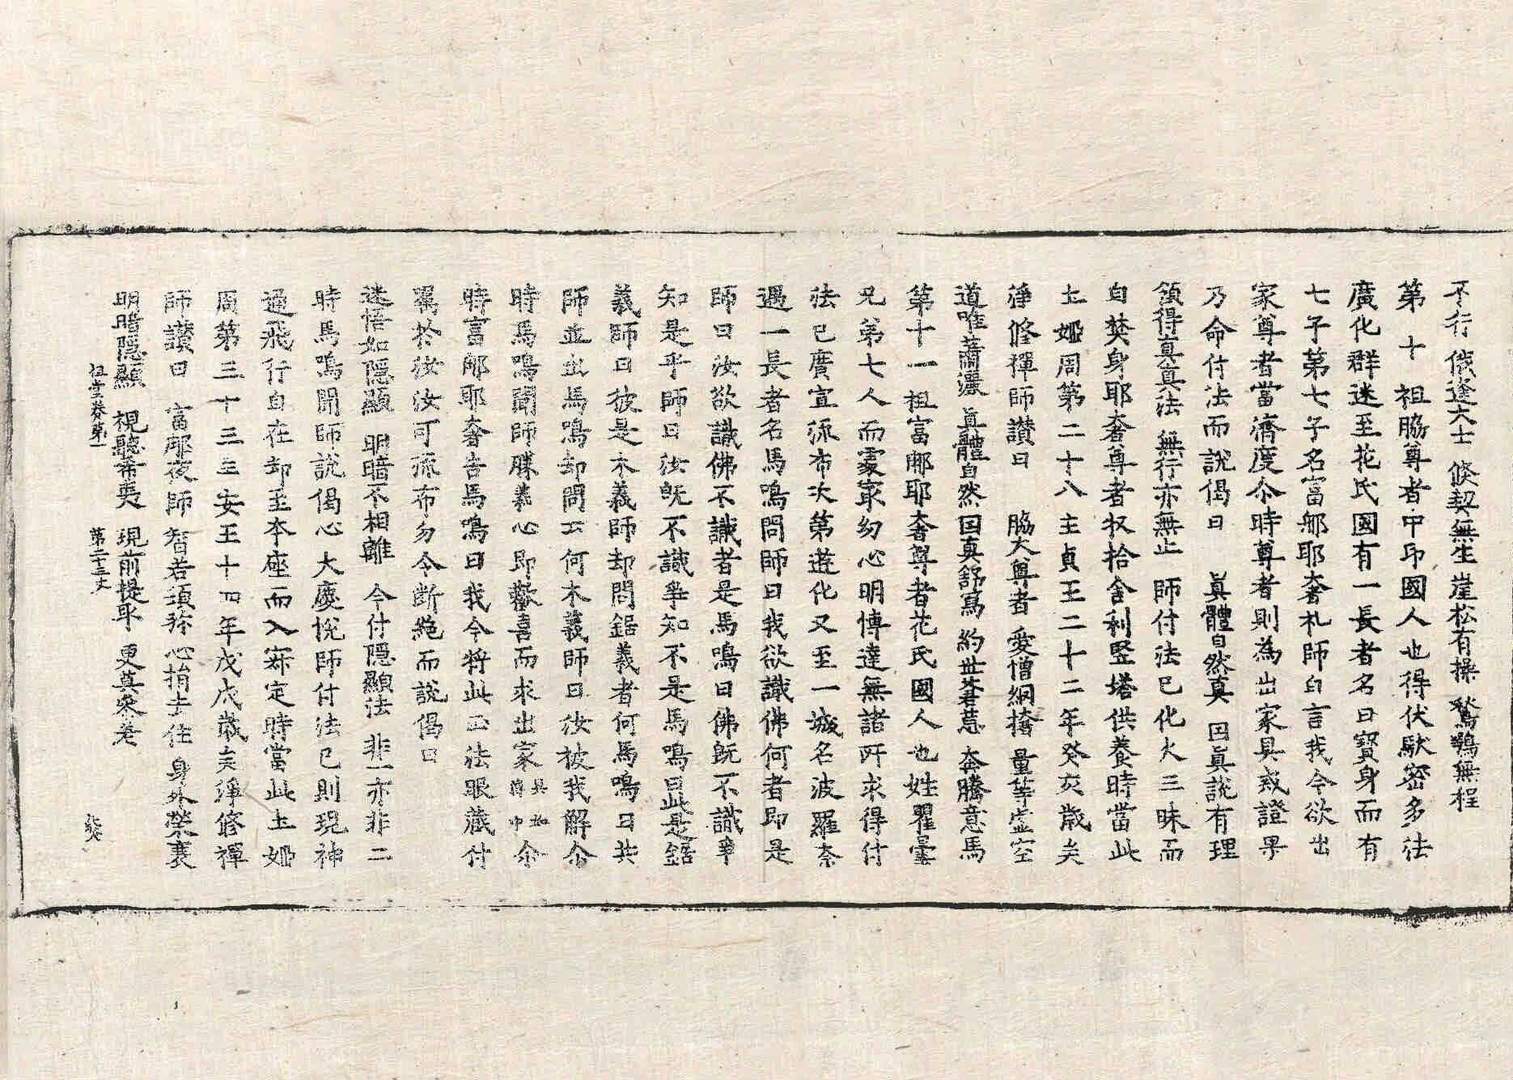 不行俄逢大士倏契無生崖松有操鶖鷺無程
第十祖脇尊者中印國人也得伏馱密多法
廣化群迷至花氏國有一長者名曰寶身而有
七子第七子名富那耶奢礼師白言我今欲出
家尊者當濟度尒時尊者則為出家具戒證果
乃命付法而說偈曰　眞體自然真　因眞說有理
領得真真法　無行亦無止　師付法已化火三昧而
自焚身耶奢尊者收拾舍利竪塔供養時當此
土姬周第二十八主貞王二十二年癸亥歲矣
淨修禪師讚曰　脇大尊者　愛憎網擔　量等虛空
道唯蕭灑　眞體自然　因真舘寫　約世著慧　奔騰意馬
第十一祖富那耶奢尊者花氏國人也姓瞿曇
兄弟七人而處家幼心明博達無諸所求得付
法已廣宣流布次第遊化又至一城名波羅奈
遇一長者名馬鳴問師曰我欲識佛何者即是
師曰汝欲識佛不識者是馬鳴曰佛旣不識爭
知是乎師曰汝旣不識爭知不是馬鳴曰此是鋸
義師曰彼是木義師却問鋸義者何馬鳴曰共
師並出馬鳴却問云何木義師曰汝被我解尒
時馬鳴聞師勝義心即歡喜而求出家 尒
時富那耶奢告馬鳴曰我今將此正法眼藏付
囑於汝汝可流布勿令斷絶而說偈曰
迷悟如隱顯　明暗不相離　今付隱顯法　非一亦非二
時馬鳴聞師說偈心大慶悅師付法已則現神
通飛行自在却至本座而入寂定時當此土姬
周第三十三主安王十四年戊戌歲矣淨修禪
師讚曰　富那夜師　智若須弥　心捐去住　身外榮衰
明暗隱顯　視聽希夷　現前提取　更莫參差
祖堂卷第一　第二十三丈